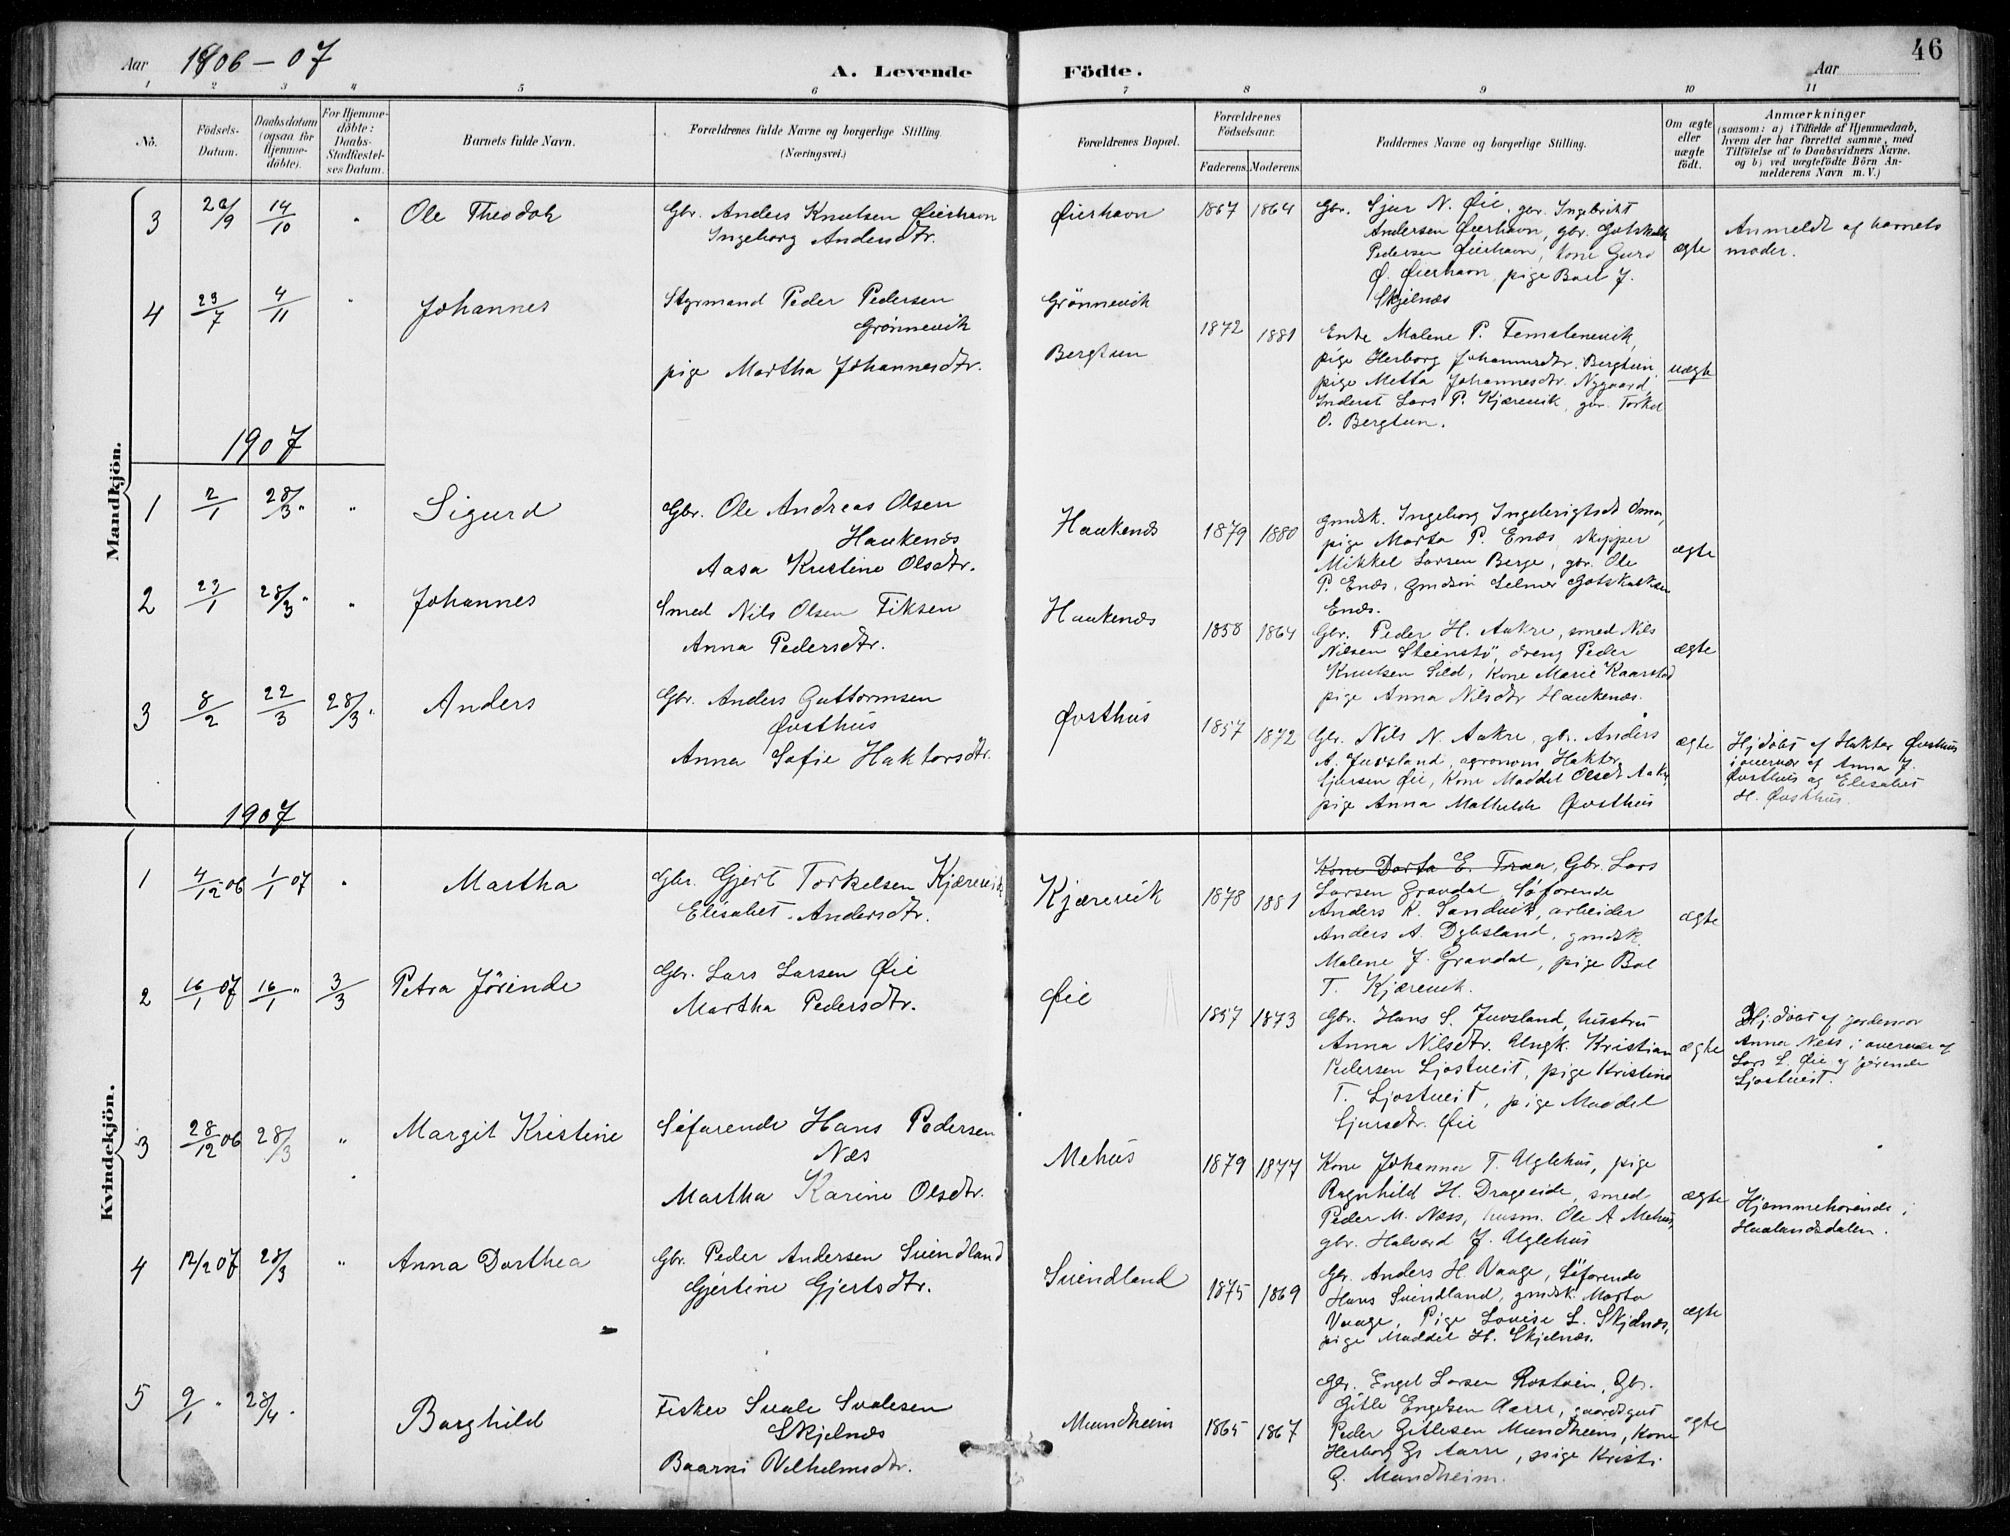 46
Aar 1906 - 07
A. Levende Födte.
Aar
1 2 3 4 5 6 7 8 9 10 11
No.
Födsels-
Datum.
Daabsdatum
(ogsaa for
Hjemme-
döbte).
For Hjemme-
döbte:
Daabs-
Stadfæstel-
ses Datum.
Barnets fulde Navn.
Forældrenes fulde Navne og borgerlige Stilling.
(Næringsvei.)
Forældrenes Bopæl.
Forældrenes
Födselsaar.
Faderens. Moderens.
Faddernes Navne og borgerlige Stilling.
Om ægte
eller
uægte
födt.
Anmærkninger
(saasom: a) i Tilfælde af Hjemmedaab,
hvem der har forrettet samme, med
Tilföielse af to Daabsvidners Navne.
og b) ved uægtefödte Börn An-
melderens Navn m. V.)
Mandkjön.
3 14/10 " Ole Theodor
Gbr. Anders Knutsen Øierhavn
Ingeborg Andersdtr.
Øierhavn 1867 1864
Gbr. Sjur N. Øie, gbr. Ingebrikt
Andersen Øierhavn, gbr. Gotskalk
Pedersen Øierhavn, kone Guro
Ø. Øierhavn, pige Boel J.
Skjelnæs
ægte
Anmeldt af barnets
moder.
4 23/7 4/11 " Johannes
Styrmand Peder Pedersen
Grönnevik
pige Martha Johannesdtr.
Grönnevik
Bergtun
1872 1881
Enke Malene P. Femstenevik,
pige Herborg Johannesdtr. Bergtun,
pige Metta Johannesdtr. Nygaard,
Inderst Lars P. Kjærevik, gbr. Torkel
O. Bergtun.
uægte
1907
1 2/1 28/3 " " Sigurd
Gbr. Ole Andreas Olsen
Haukenæs
Aasa Kristine Olsdtr.
Haukenæs 1879 1880
gmdsk. Ingeborg Ingebrigtsdt Oma,
pige Marta P. Enæs, skipper
Mikkel Larsen Berge, gbr. Ole
P. Enæs, gmdsön Selmer Gotskalksen
Enæs.
ægte
2 23/1 28/3 " " Johannes
Smed Nils Olsen Fiksen
Anna Pedersdtr.
Haukenæs 1858 1864
Gbr. Peder H. Aakre, smed Nils
Nilsen Steinstö, dreng Peder
Knutsen Sild, Kone Marie Kaarstad
pige Anna Nilsdtr Haukenæs.
ægte
3 8/2 22/3 28/3 " Anders
Gbr. Anders Guttormsen
Øvsthus
Anna Sofie Haktorsdtr.
Øvsthus 1857 1872
Gbr. Nils N. Aakre, gbr. Anders
A. Juvsland, agronom Haktor
Sjursen Øie, Kone Maddel Olsdt. Aakre
pige Anna Mathilde Øvsthus
ægte
Hjdöbt af Haktor Øvsthus
i overvær af Anna J.
Øvsthus og Elisabet
H. Øvsthus.
1907
Kvindekjön.
1 4/12 06 1/1 07 " Martha
Gbr. Gjert Torkelsen Kjærevik
Elisabet Andersdtr.
Kjærevik 1878 1881
Kone Dorta E. Traa, Gbr. Lars
Larsen Gravdal, Söfarende
Anders K. Sandvik, arbeider
Anders A. Dybsland, gmdsk.
Malene J. Gravdal, pige Bol
T. Kjærevik.
ægte
2 16/1 07 16/1 " 3/3 Petra Jörinde
Gbr. Lars Larsen Øie
Martha Pedersdtr.
Øie 1857 1873
Gbr. Hans S. Juvsland, hustru
Anna Nilsdtr. Ungk. Kristian
Pedersen Ljostveit, pige Kristina
T. Ljostveit, pige Maddel
Sjursdtr. Øie
ægte
Hjdöbt af jordemor
Anna Næss i overvær af
Lars L. Øie og Jörende
Ljostveit.
3 28/12 06 28/3 " Margit Kristine
Söfarende Hans Pedersen
Næs
Martha Karine Olsdtr.
Mehus 1879 1877
Kone Johanna T. Uglehus, pige
Ragnhild H. Drageeide, smed
Peder M. Næss, husm. Ole A Mehus,
gbr. Halvard J. Uglehus
ægte
Hjemmehörende i
Haalandsdalen.
4 12/2 07 28/3 " Anna Dorthea
Gbr. Peder Andersen Svindland
Gjertine Gjertsdtr.
Svindland 1875 1869
Gbr. Anders H. Vaage, Söfarende
Hans Svindland, gmdsk. Marta
Vaage, Pige Lovise L. Skjelnæs,
pige Maddel H. Skjelnæs.
ægte
5 9/1 " 28/4 " Borghild
Fisker Svale Svalesen
Skjelnæs
Baarni Vilhelmsdtr.
Mundheim 1865 1867
Gbr. Engel Larsen Rostvein, Gbr.
Gitle Engelsen Aarre, gaardgut
Peder Gitlesen Mundheim, Kone
Herborg G. Aarre, pige Kristi
G. Mundheim.
ægte